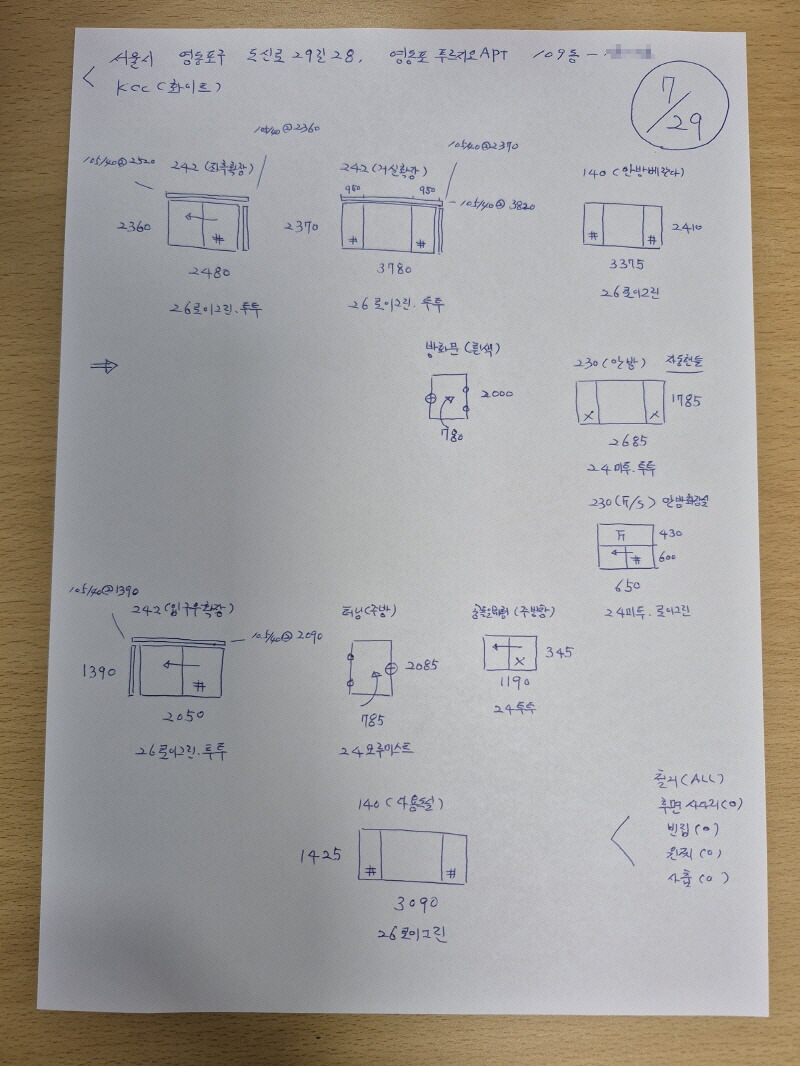 서울시 영등포구 도신로 29길 28, 영등포 푸르지오APT 109동 -
KCC (화이트)
7/29
105/40@2360
105/40@2520
242 (좌측확장)
2360
2480
26로이그린.투투
105/40@2370
242 (거실확장)
950 950
105/40@3820
2370
3780
26로이그린.투투
140 (안방베란다)
2410
3375
26로이그린
⇒
방화문 (흰색)
2000
780
230 (안방) 자동핸들
1785
2685
24미투.투투
230 (F/S) 안방화장실
F
430
600
650
24미투.로이그린
105/40@1390
242 (입구우확장)
105/40@2090
1390
2050
26로이그린.투투
터닝 (주방)
2085
785
24모루미스트
(주방창)
345
1190
24투투
140 (다용도실)
1425
3090
26로이그린
철거 (ALL)
후면 사다리 (O)
빈집 (O)
사춤 (O)